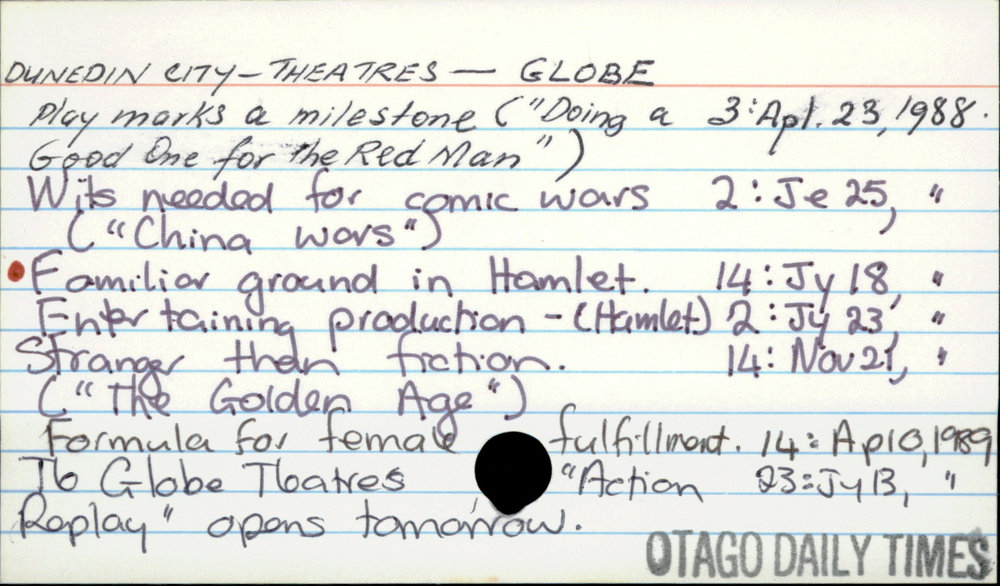 DUNEDIN CITY - THEATRES — GLOBE
Play marks a milestone ("Doing a 3:Apl. 23, 1988.
Good One for the Red Man")
Wits needed for comic wars 2: Je 25, "
("China wars")
Familiar ground in Hamlet. 14: Jy 18, "
Entertaining production - (Hamlet) 2: Jy 23, "
Stranger than fiction. 14: Nov 21, "
("The Golden Age")
Formula for female fulfillment. 14: Ap 10, 1989
Tb Globe Tbatres "Action 23: Jy 13, "
Replay" opens tomorrow.
OTAGO DAILY TIMES